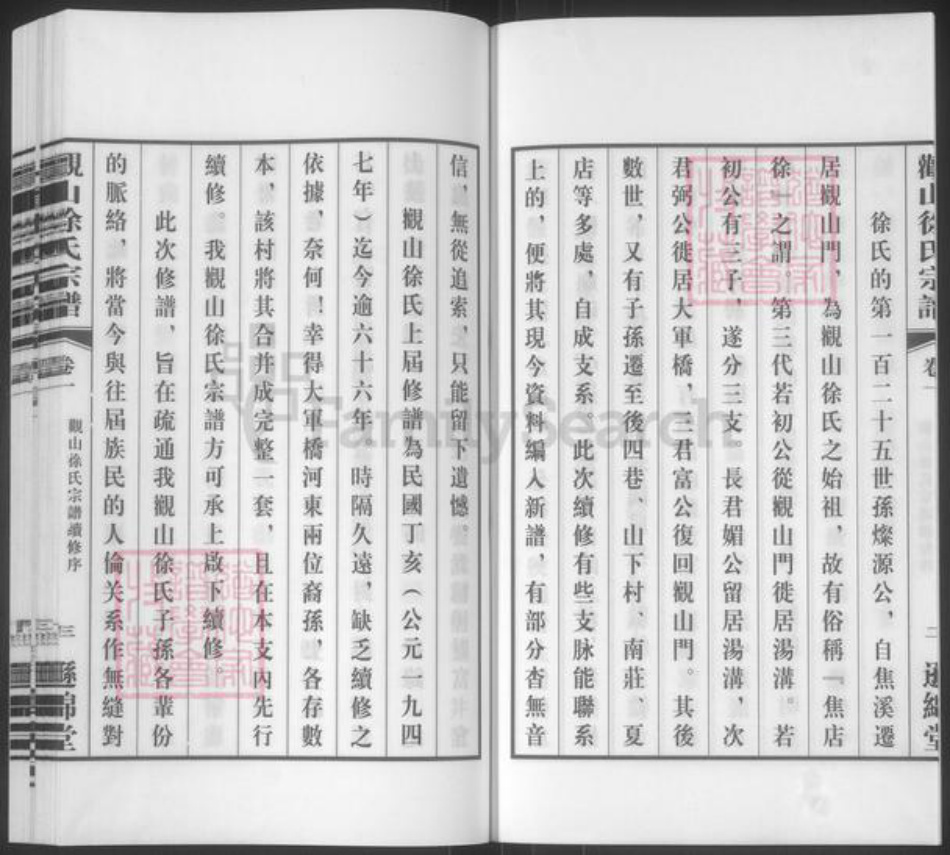 觀山徐氏宗譜
卷一
二
徐氏的第一百二十五世孫燦源公，自焦溪遷
居觀山門，為觀山徐氏之始祖，故有俗稱『焦店
徐』之謂。第三代若初公從觀山門徙居湯溝。若
初公有三子，遂分三支，長君媚公留居湯溝，次
君弼公徙居大軍橋，三君富公復回觀山門。其後
數世，又有子孫遷至後四巷、山下村、南莊、夏
店等多處，自成支系。此次續修有些支脉能聯系
上的，便將其現今資料編入新譜，有部分杳無音
信，無從追索，只能留下遺憾。
觀山徐氏上屆修譜為民國丁亥（公元一九四
七年）迄今逾六十六年，時隔久遠，缺乏續修之
依據，奈何！幸得大軍橋河東兩位裔孫，各存數
本，該村將其合并成完整一套，且在本支內先行
續修。我觀山徐氏宗譜方可承上啟下續修。
此次修譜，旨在疏通我觀山徐氏子孫各輩份
的脈絡，將當今與往屆族民的人倫关系作無縫對
觀山徐氏宗譜
卷一
觀山徐氏宗譜續修序
三
FamilySearch